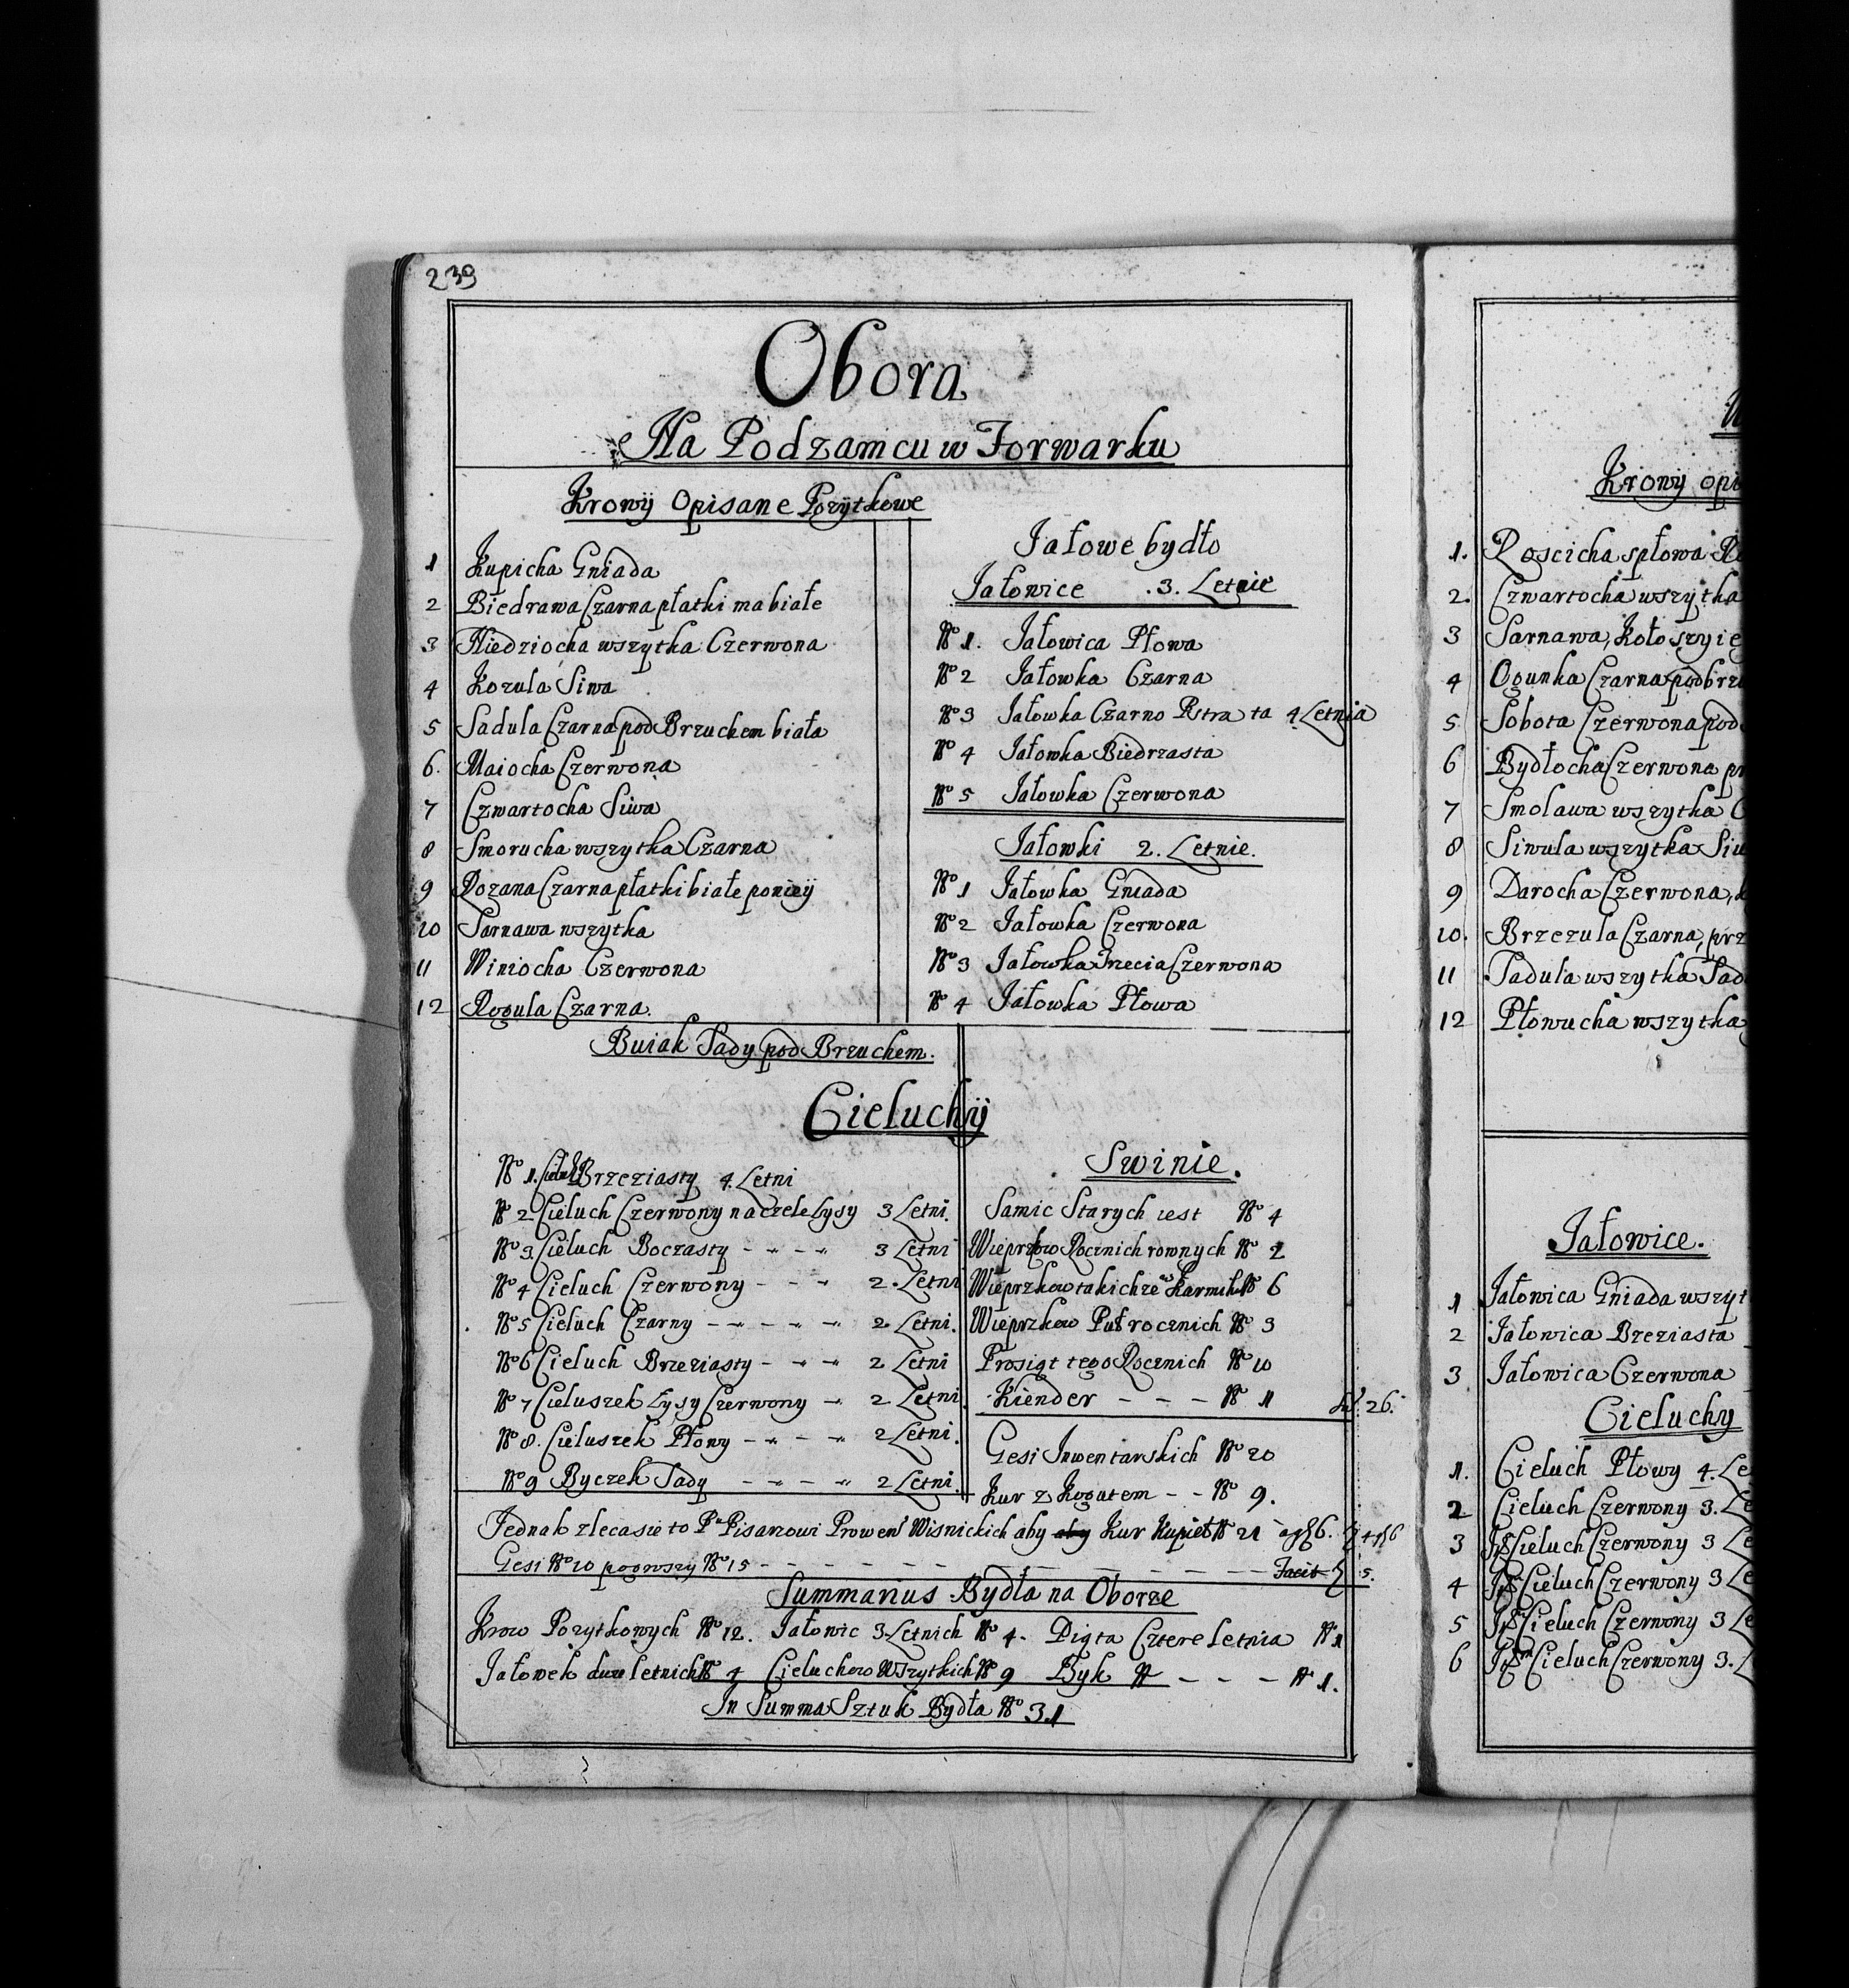 239
Obora
Na Podzamcu w Forwarku
Krowÿ Opisane Pozÿtkowe
1 Kupicha Gniada
2 Biedrawa Czarna płatki ma białe
3 Niedziocha wszytka Czerwona
4 Kozula Siwa
5 Sadula Czarna pod Brzuchem biała
6. Maiocha Czerwona
7 Czwartocha Siwa
8 Smorucha wszytka Czarna
9 Rozana Czarna płatki białe po nieÿ
10 Sarnawa wszytka
11 Winiocha Czerwona
12 Rogula Czarna.
Buiak Sady pod Brzuchem.
Jałowe bydło
Jałowice .3. Letnie
No 1. Jałowica Płowa
No 2 Jałowka Czarna
No 3 Jałowka Czarno Pstra ta 4 Letnia
No 4 Jałowka Biedrzasta
No 5 Jałowka Czerwona
Jałowki 2. Letnie.
No 1 Jałowka Gniada
No 2 Jałowka Czerwona
No 3 Jałowka Trzecia Czerwona
No 4 Jałowka Płowa
Cieluchÿ
No 1. Brzeziasty 4. Letni
No 2 Cieluch Czerwony na czele Łysy 3 Letni.
No 3. Cieluch Boczasty 3 Letni
No 4 Cieluch Czerwony 2. Letni
No 5 Cieluch Czarny 2 Letni.
No 6 Cieluch Brzeziasty 2 Letni
No 7 Cieluszek Łysy Czerwony 2 Letni
No 8. Cieluszek Płowy 2 Letni.
No 9 Byczek Sady 2 Letni.
Swinie.
Samic Starych iest No 4
Wieprzkow Rocznich rownych No 2
Wieprzkow takichze w Karmiku No 6
Wieprzkow Puł rocznich No 3
Prosiąt tego Rocznich No 10
Kiender No 1
26.
Gesi Inwentarskich No 20
Kur z Kogutem No 9.
Jednak zleca sie to Pu Pisarzowi Prowent Wisnickich aby aby Kur Kupieł No 21 a 6.
Gesi No 10 pogwszy No 15 Facit 5.
Summarius Bydła na Oborze
Krow Pozytkowych No 12. Jałowic 3. Letnich No 4. Piąta Cztere letnia No 1
Jałowek dwu letnich No 4 Cieluchow Wszytkich No 9 Byk No 1.
In Summa Sztuk Bydła No 31
Krowÿ opi
1. Roscicha spłowa
2. Czwartocha wszÿtka
3 Sarnawa, Koło szyie
4 Ogunka Czarna pod brzu
5 Sobota Czerwona pod
6 Bydłocha Czerwona pr
7 Smolawa wszytka C
8 Siwula wszytka Siw
9 Darocha Czerwona,
10. Brzezula Czarna, prz
11 Sadula wszytka Sad
12 Płowucha wszytka
Jałowice.
1 Jałowica Gniada wszyt
2 Jałowica Brzeziasta
3 Jałowica Czerwona
Cieluchy
1. Cieluch Płowy 4. Le
2 Cieluch Czerwony 3. Le
3 Cieluch Czerwony 3 Le
4 Cieluch Czerwony 3 Le
5 Cieluch Czerwony 3 Le
6 Cieluch Czerwony 3. L